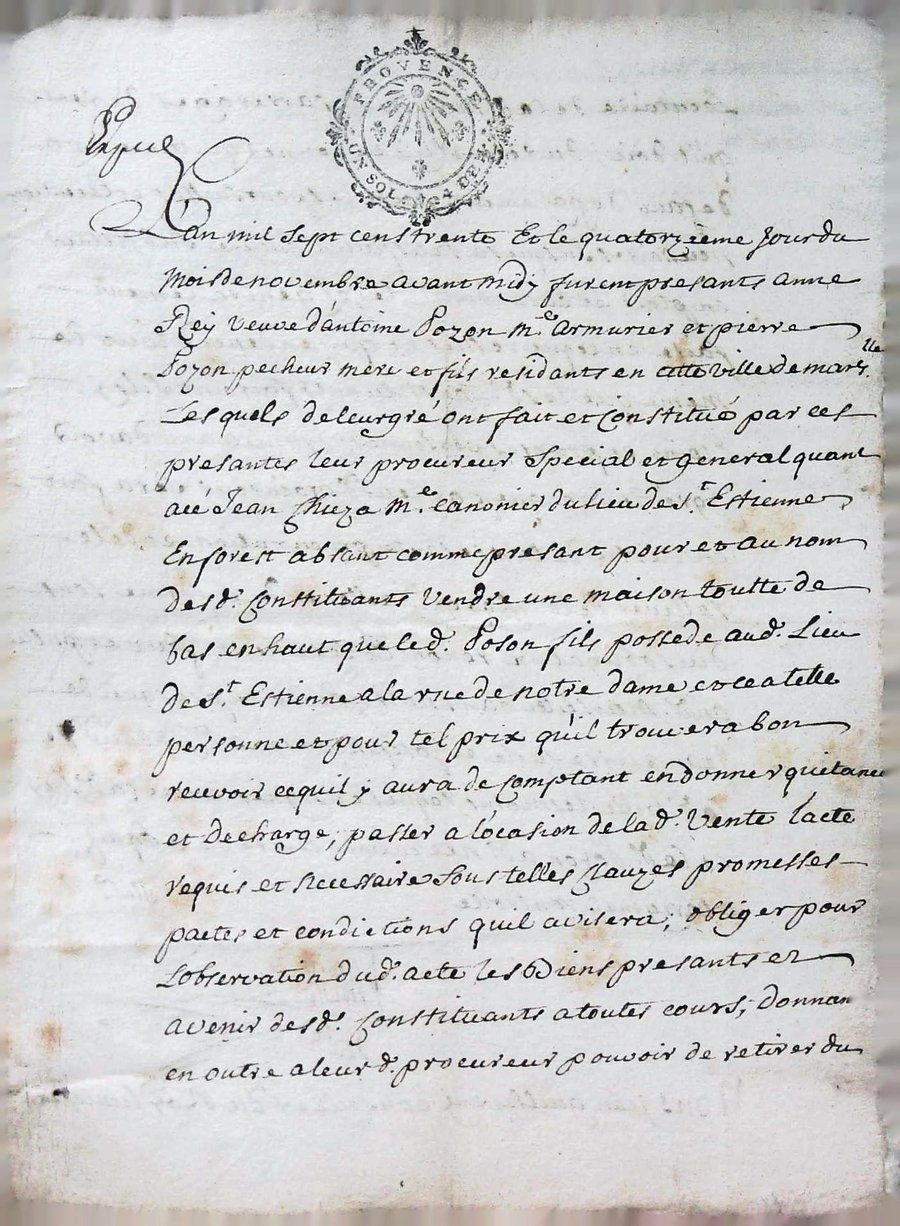 PROVENCE
UN SOL 4 DEN
L'an mil sept cens trente Et le quatorzieme Jour du
Mois de novembre avant midy furent presants anne
Rey veuve d'antoine Pozon Me. armurier et pierre
Pozon pecheur mere et fils residants en cette ville de marslle
Lesquels de leur gré ont fait et Constitué par ces
presantes leur procureur Special et general quant
a cé Jean Me. Canonier du lieu de St. Estienne
En forest absant comme presant pour et au nom
desd. Constituants vendre une maison toutte de
bas en haut que led. Poson fils possede aud. Lieu
de St. Estienne a la rue de notre dame et ce a telle
personne et pour tel prix qu'il trouvera bon
recevoir ce quil y aura de Comptant en donner quitance
et Decharge, passer a l'ocasion de lad. vente lacte
requis et necessaire sous telles Clauzes promesses
pactes et condictions quil avisera, obliger pour
Lobservation dud. acte les Biens presants et
avenir desd. Constituants a toutes cours, Donnan
en outre a leur d. procureur pouvoir de retirer du